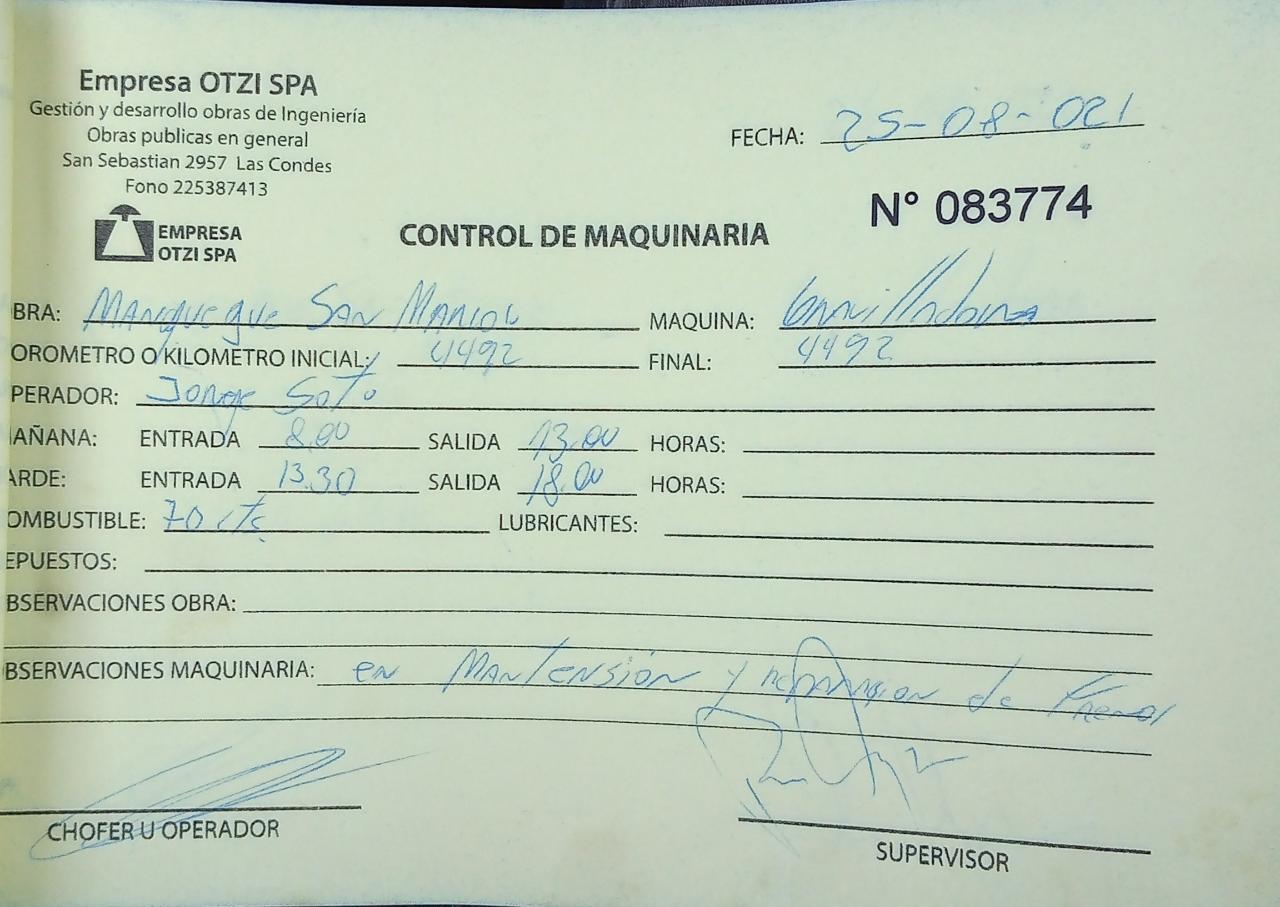 Empresa OTZI SPA
Gestión y desarrollo obras de Ingeniería
Obras publicas en general
San Sebastian 2957 Las Condes
Fono 225387413
EMPRESA
OTZI SPA
FECHA: 25-08-021
N° 083774
CONTROL DE MAQUINARIA
BRA: San MAQUINA:
OROMETRO O KILOMETRO INICIAL: 4492 FINAL: 4492
PERADOR: Jorge Soto
AÑANA: ENTRADA 8.00 SALIDA 13.00 HORAS:
ARDE: ENTRADA 13.30 SALIDA 18.00 HORAS:
OMBUSTIBLE: 70 LUBRICANTES:
EPUESTOS:
BSERVACIONES OBRA:
BSERVACIONES MAQUINARIA: en Mantensión y reparacion de
CHOFER U OPERADOR
SUPERVISOR